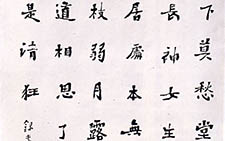 下莫愁堂
長神女生
居處本無
枝弱月露
道相思了
是清狂